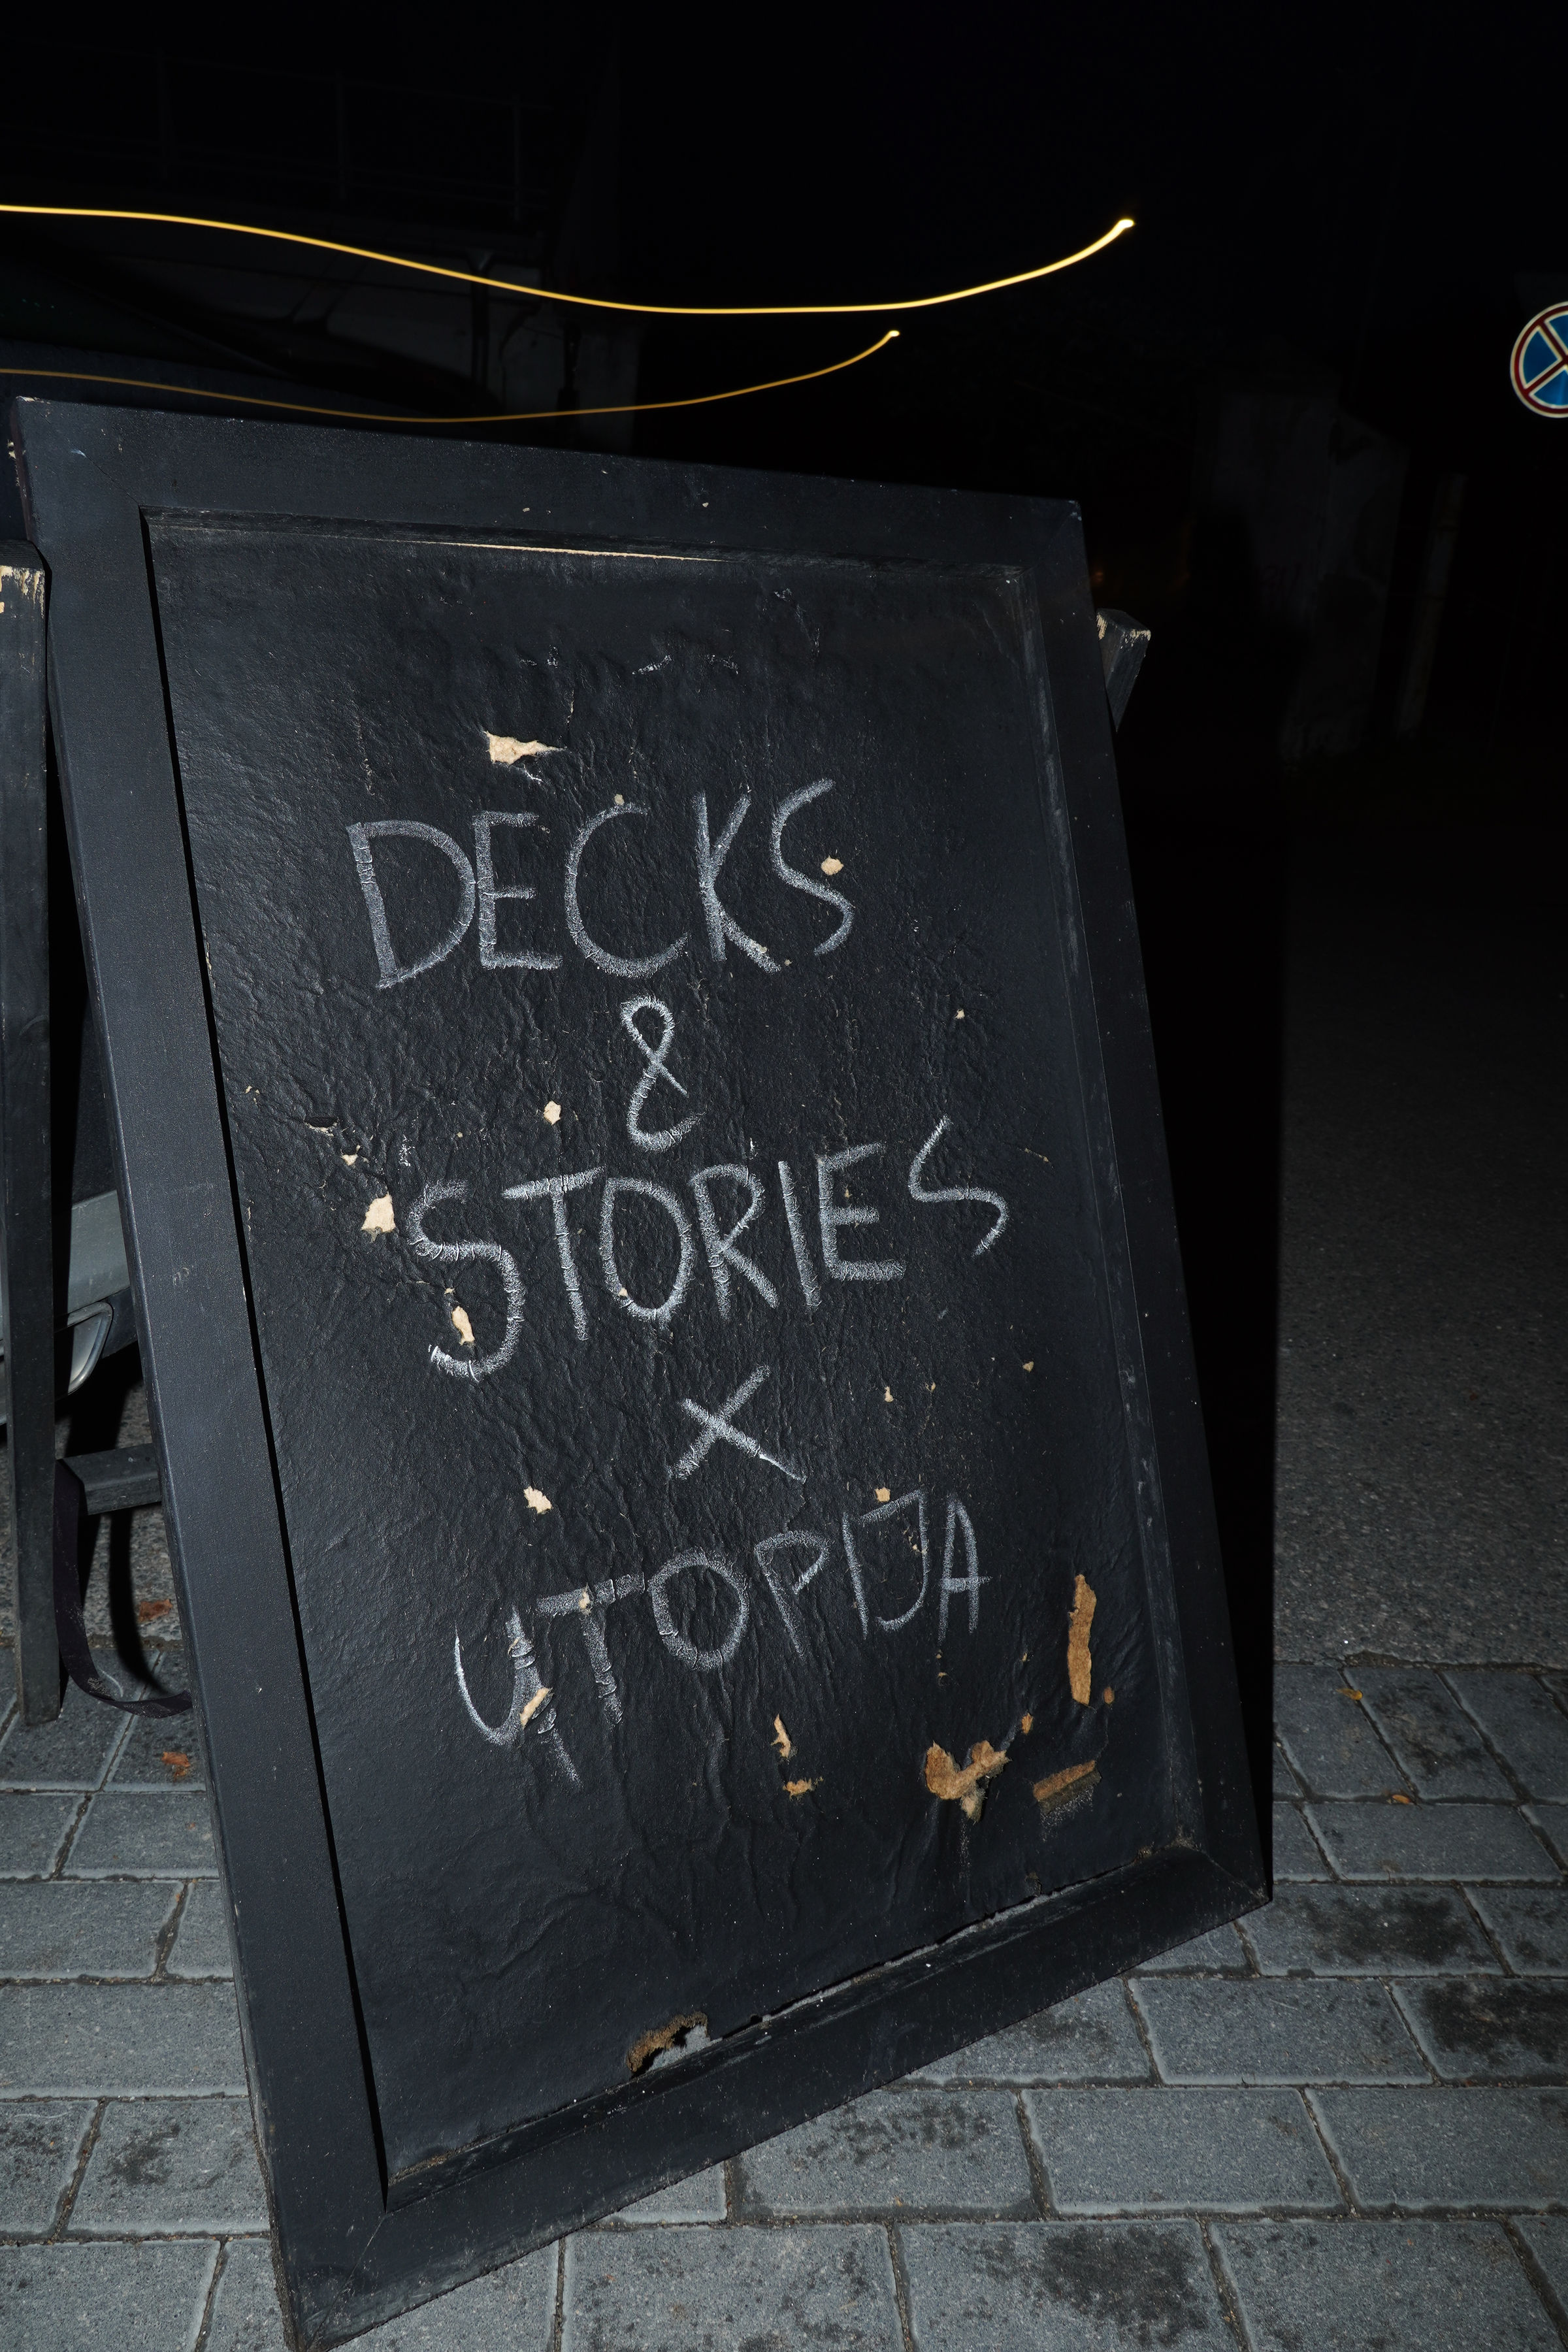 DECKS
&
STORIES
X
UTOPIJA